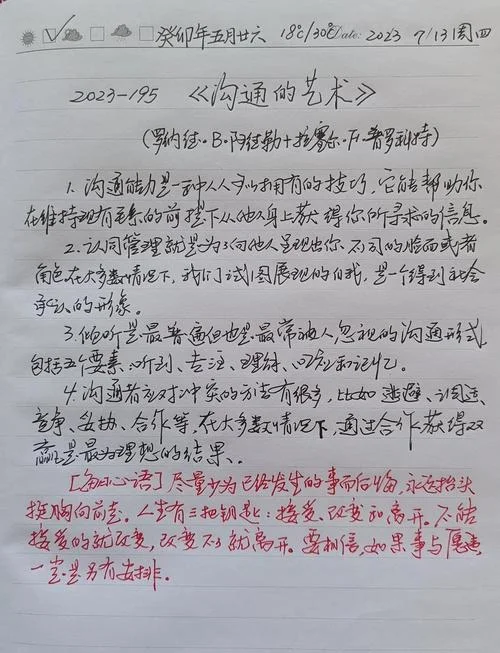 癸卯年五月廿六 18℃/30℃ Date: 2023 7/13 周四
2023-195 《沟通的艺术》
(罗纳德·B·阿德勒+拉塞尔·F·普罗科特)
1. 沟通能力是一种人人可以拥有的技巧,它能帮助你
在维持现有关系的前提下从他人身上获得你所寻求的信息。
2. 认同管理就是为了向他人呈现出你不同的脸面或者
角色在大多数情况下,我们试图展现的自我,是一个得到社会
承认的形象。
3. 倾听是最普遍但也是最常被人忽视的沟通形式,
包括五个要素:听到、专注、理解、回应和记忆。
4. 沟通者应对冲突的方法有很多,比如逃避、调适、
竞争、妥协、合作等,在大多数情况下,通过合作获得双
赢是最为理想的结果。
[每日心语] 尽量少为已经发生的事而后悔,永远抬头
挺胸向前走。人生有三把钥匙:接受、改变和离开。不能
接受的就改变,改变不了就离开。要相信,如果事与愿违
一定是另有安排。